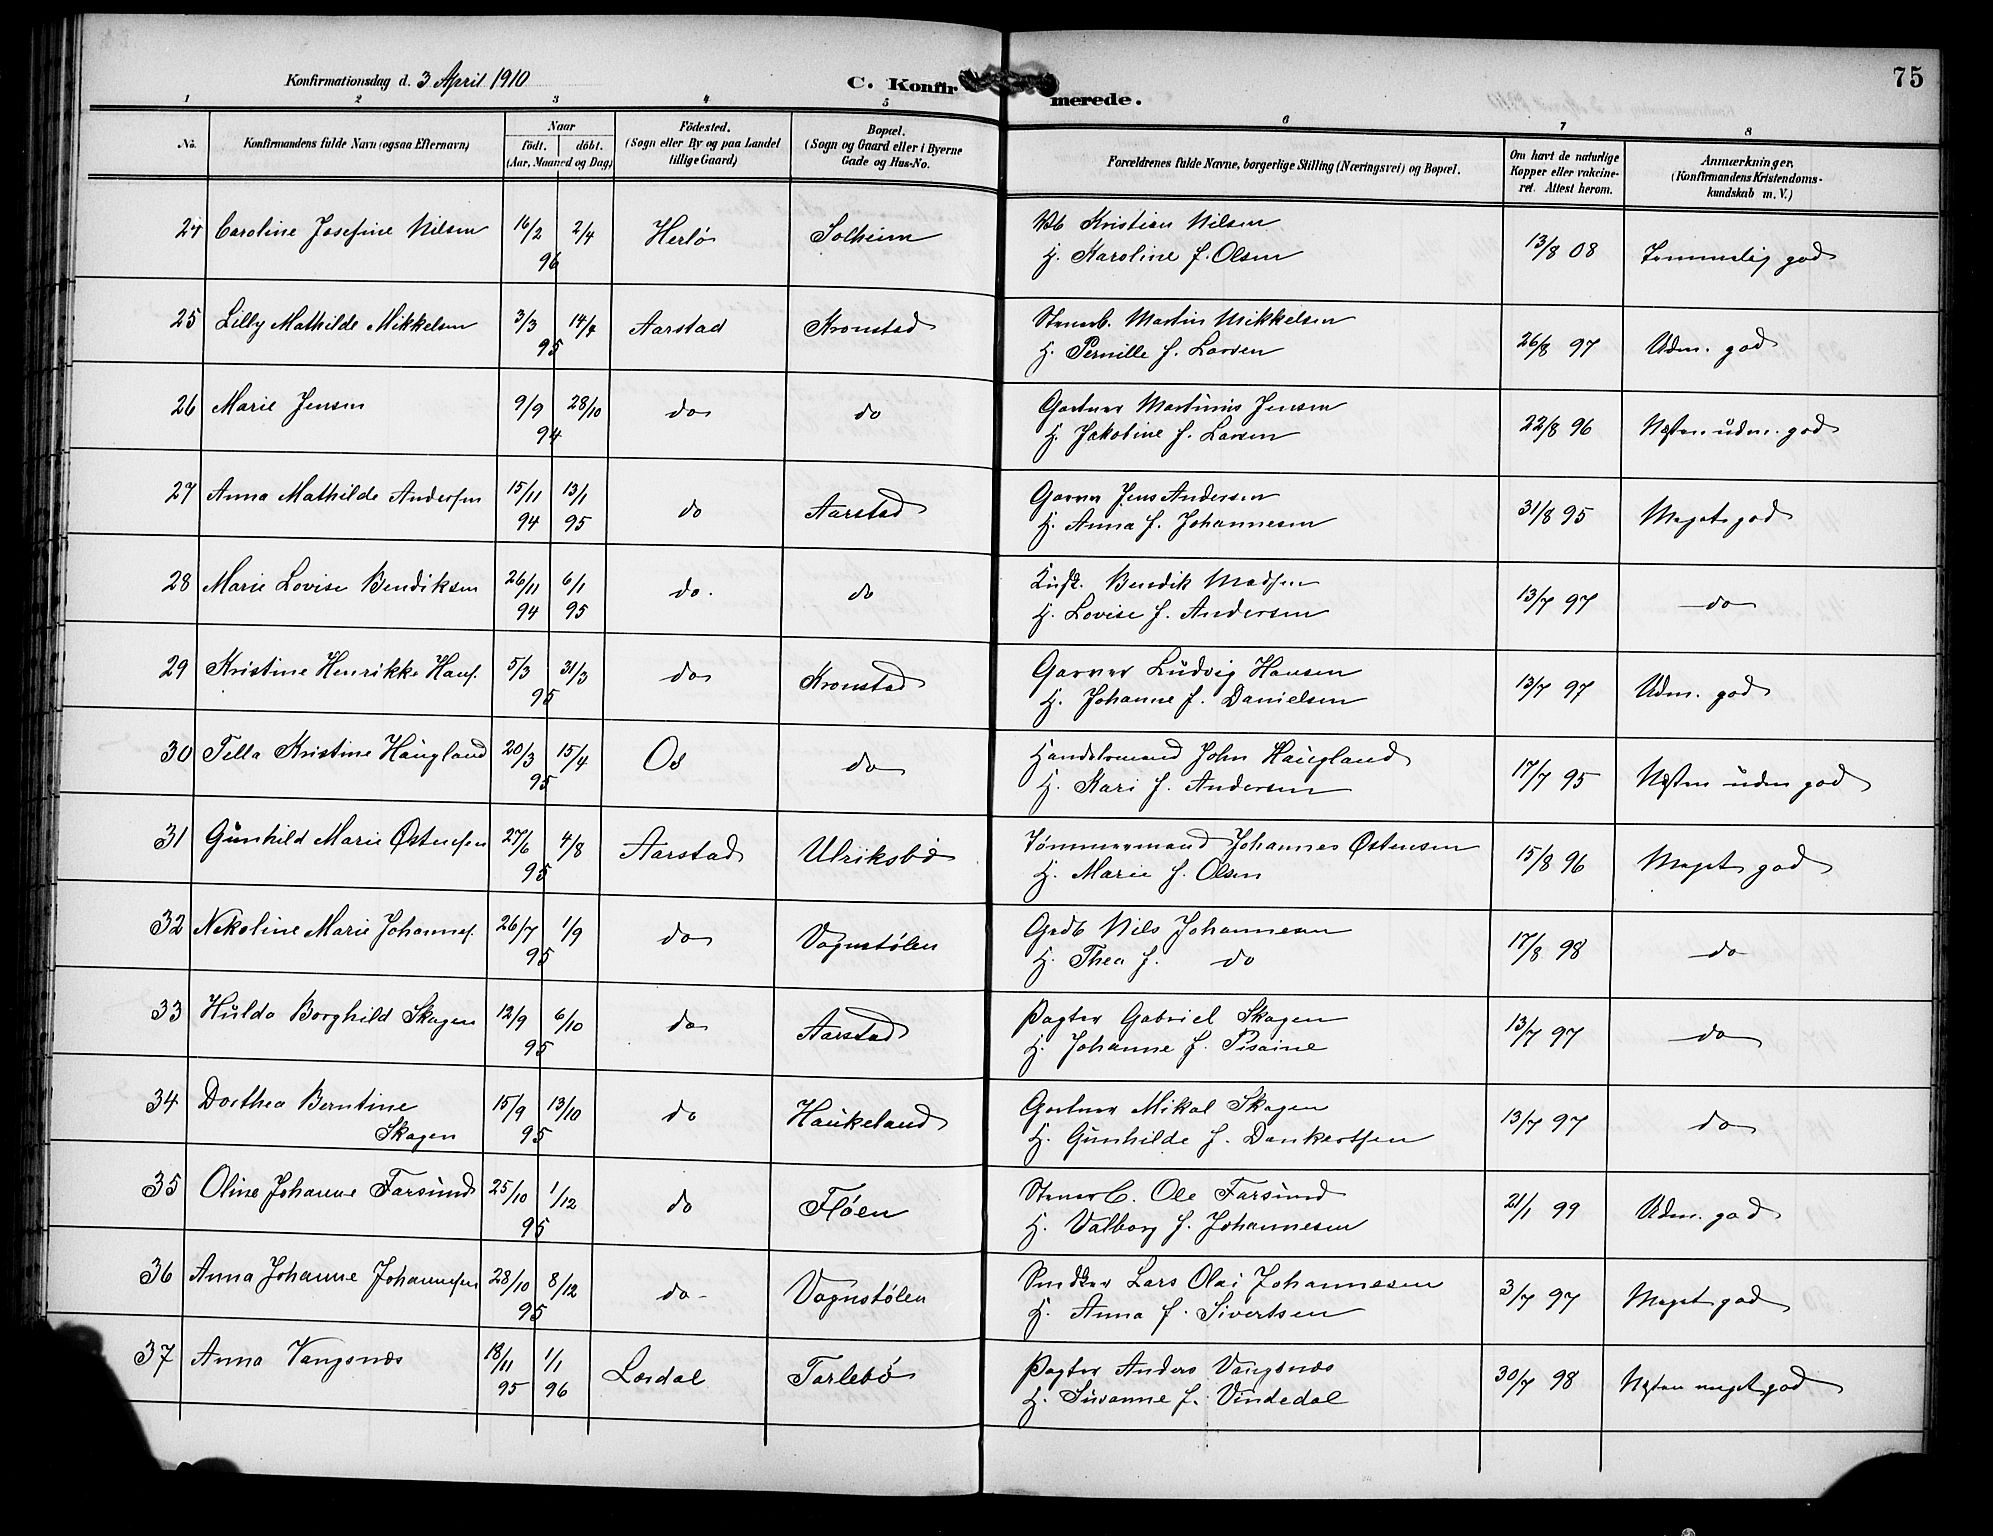 75
Konfirmationsdag d. 3 April 1910
C. Konfirmerede.
1 2 3 4 5 6 7 8
No. Konfirmandens fulde Navn (ogsaa Efternavn) Naar födt. döbt. (Aar, Maaned og Dag) Födested. (Sogn eller By og paa Landet tillige Gaard) Bopæl. (Sogn og Gaard eller i Byerne Gade og Hus-No. Forældrenes fulde Navne, borgerlige Stilling (Næringsvei) og Bopæl. Om havt de naturlige Kopper eller vakcineret. Attest herom. Anmærkninger. (Konfirmandens Kristendomskundskab m. V.)
24 Caroline Josefine Nilsen 16/2 2/4 96 Herlø Solheim Kristian Nilsen
H. Karoline f. Olsen 13/8 08 Temmelig god
25 Lilly Mathilde Mikkelsen 3/3 14/4 95 Aarstad Kronstad Stenarb. Martin Mikkelsen
H. Pernille f. Larsen 26/8 97 Udm. god
26 Marie Jensen 9/9 28/10 94 do do Gartner Martinus Jensen
H. Jakobine f. Larsen 22/8 96 Næsten udm. god
27 Anna Mathilde Andersen 15/11 94 13/1 95 do Aarstad Garver Jens Andersen
H. Anna f. Johannesen 31/8 95 Meget god
28 Marie Lovise Bendiksen 26/11 94 6/1 95 do. do Bendik Madsen
H. Lovise f. Andersen 13/7 97 do
29 Kristine Henrikke Hans. 5/3 31/3 95 do Kronstad Garver Ludvig Hansen
H. Johanne f. Danielsen 13/7 97 Udm. god
30 Tella Kristine Haugland 20/3 15/4 95 Os do Handelsmand John Haugland
H. Kari f. Andersen 17/7 95 Næsten udm god
31 Gunhild Marie Østensen 27/6 4/8 95 Aarstad Ulriksbø Tømmermand Johannes Østensen
H. Marie f. Olsen 15/8 96 Meget god
32 Nekoline Marie Johannes. 26/7 1/9 95 do Vognstølen Grdb Nils Johannesen
H. Thea f. do 17/8 98 do
33 Hulda Borghild Skagen 12/9 6/10 95 do Aarstad Pagter Gabriel Skagen
H. Johanne f. Pisaine 13/7 97 do
34 Dorthea Berntine
Skagen 15/9 13/10 95 do Haukeland Gartner Mikal Skagen
H. Gunhilde f. Dankertsen 13/7 97 do
35 Oline Johanne Farsund 25/10 1/12 95 do Fløen Stenarb. Ole Farsund
H. Valborg f. Johannesen 21/1 99 Udm. god
36 Anna Johanne Johannesen 28/10 8/12 95 do Vognstølen Snedker Lars Olai Johannesen
H. Anna f. Sivertsen 3/7 97 Meget god
37 Anna Vangsnæs 18/11 95 1/1 96 Lærdal Tarlebø Pagter Anders Vangsnæs
H. Susanne f. Vindedal 30/7 98 Næsten meget god